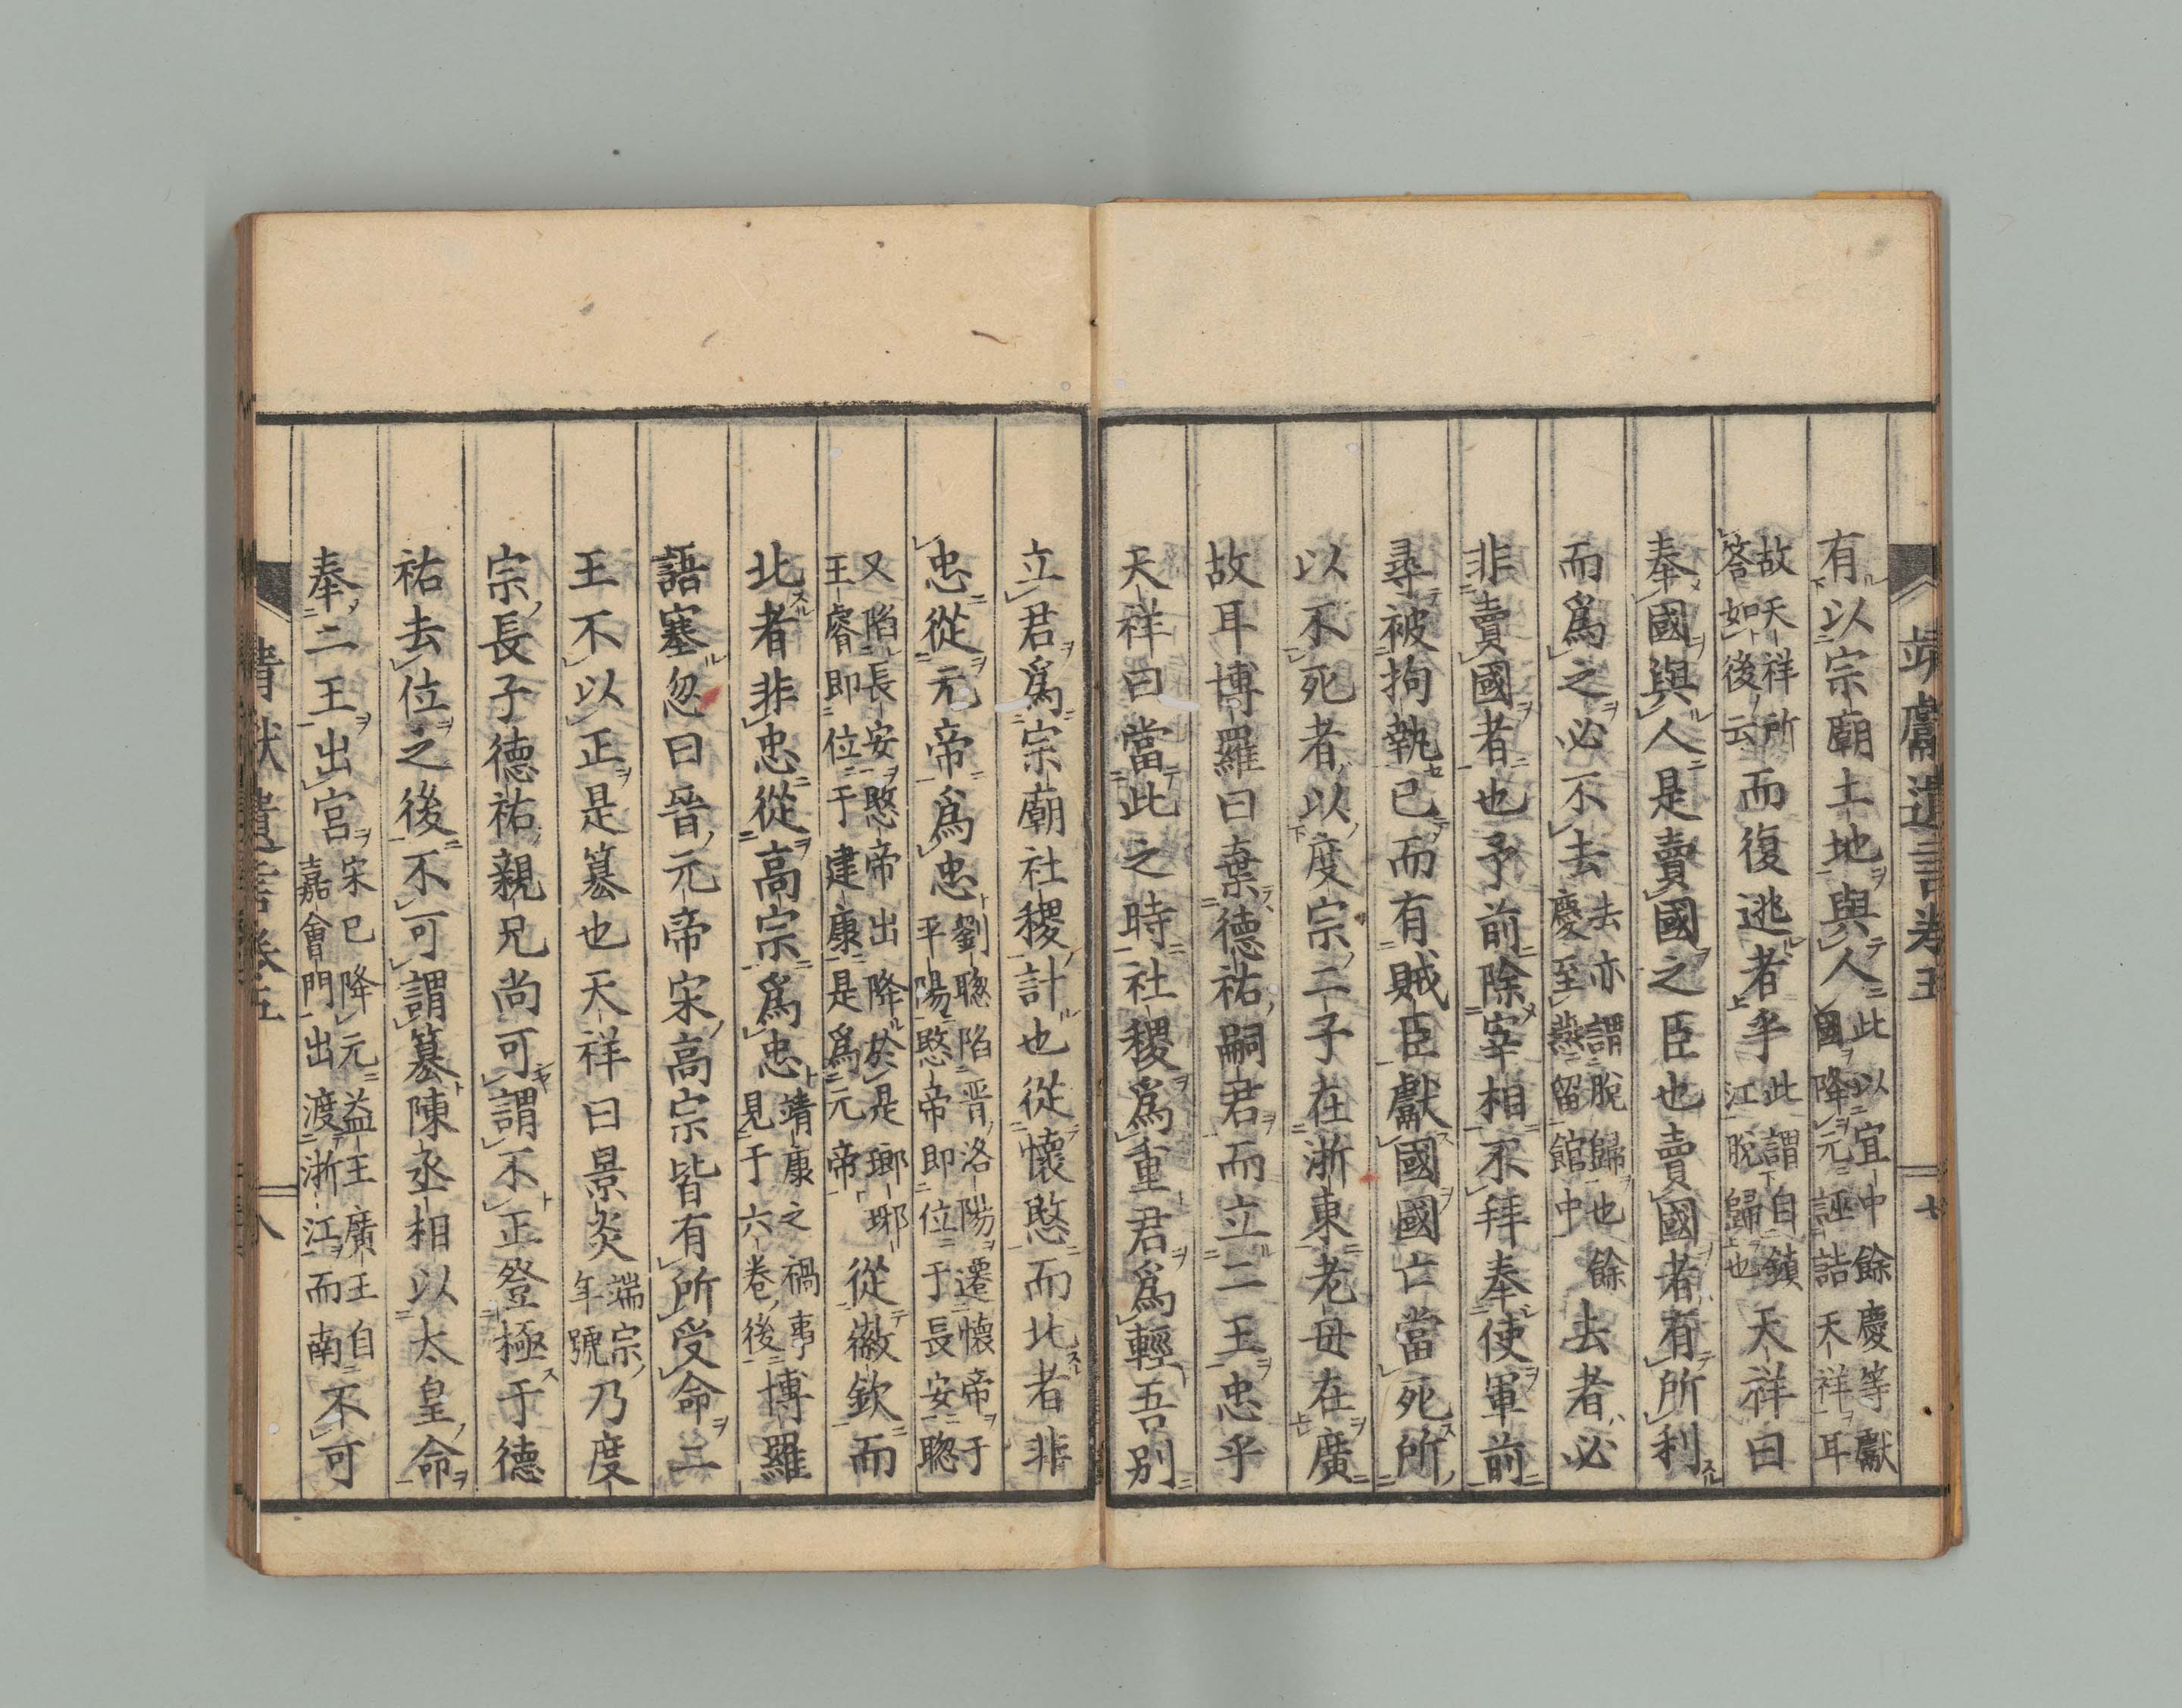 靖獻遺言卷五
七
有以宗廟土地與人此以宜中餘慶等獻國降元誣詰天祥耳
故天祥所答如後云而復逃者乎此謂自鎮江脫歸也天祥曰
奉國與人是賣國之臣也賣國者有所利
而爲之必不去去亦謂脫歸也餘慶至燕留館中去者必
非賣國者也予前除宰相不拜奉使軍前
尋被拘執已而有賊臣獻國國亡當死所
以不死者以度宗二子在浙東老母在廣
故耳博羅曰棄德祐嗣君而立二王忠乎
天祥曰當此之時社稷爲重君爲輕吾別
立君爲宗廟社稷計也從懷愍而北者非
忠從元帝爲忠劉聰陷晋洛陽遷懷帝于平陽愍帝即位于長安聰
又陷長安愍帝出降於是瑯琊王睿即位于建康是爲元帝從徽欽而
北者非忠從高宗爲忠靖康之禍事見于六卷後博羅
語塞忽曰晉元帝宋高宗皆有所受命二
王不以正是篡也天祥曰景炎端宗年號乃度
宗長子德祐親兄尚可謂不正登極于德
祐去位之後不可謂篡陳丞相以太皇命
奉二王出宮宋已降元益王廣王自嘉會門出渡浙江而南不可
靖獻遺言卷五
八